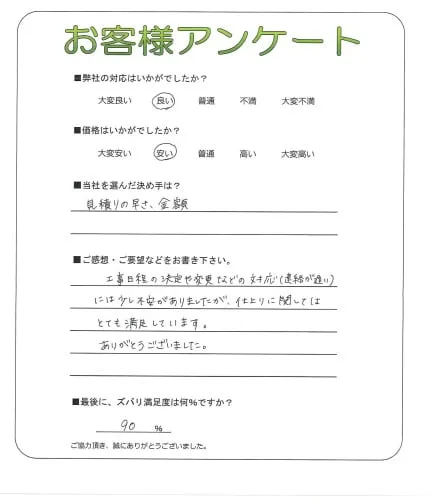 お客様アンケート
■弊社の対応はいかがでしたか？
大変良い 良い 普通 不満 大変不満
■価格はいかがでしたか？
大変安い 安い 普通 高い 大変高い
■当社を選んだ決め手は？
見積りの早さ、金額
■ご感想・ご要望などをお書き下さい。
工事日程の決定や変更などの対応(連絡が遅い)
には少し不安がありましたが、仕上りに関しては
とても満足しています。
ありがとうございました。
■最後に、ズバリ満足度は何％ですか？
90 ％
ご協力頂き、誠にありがとうございました。